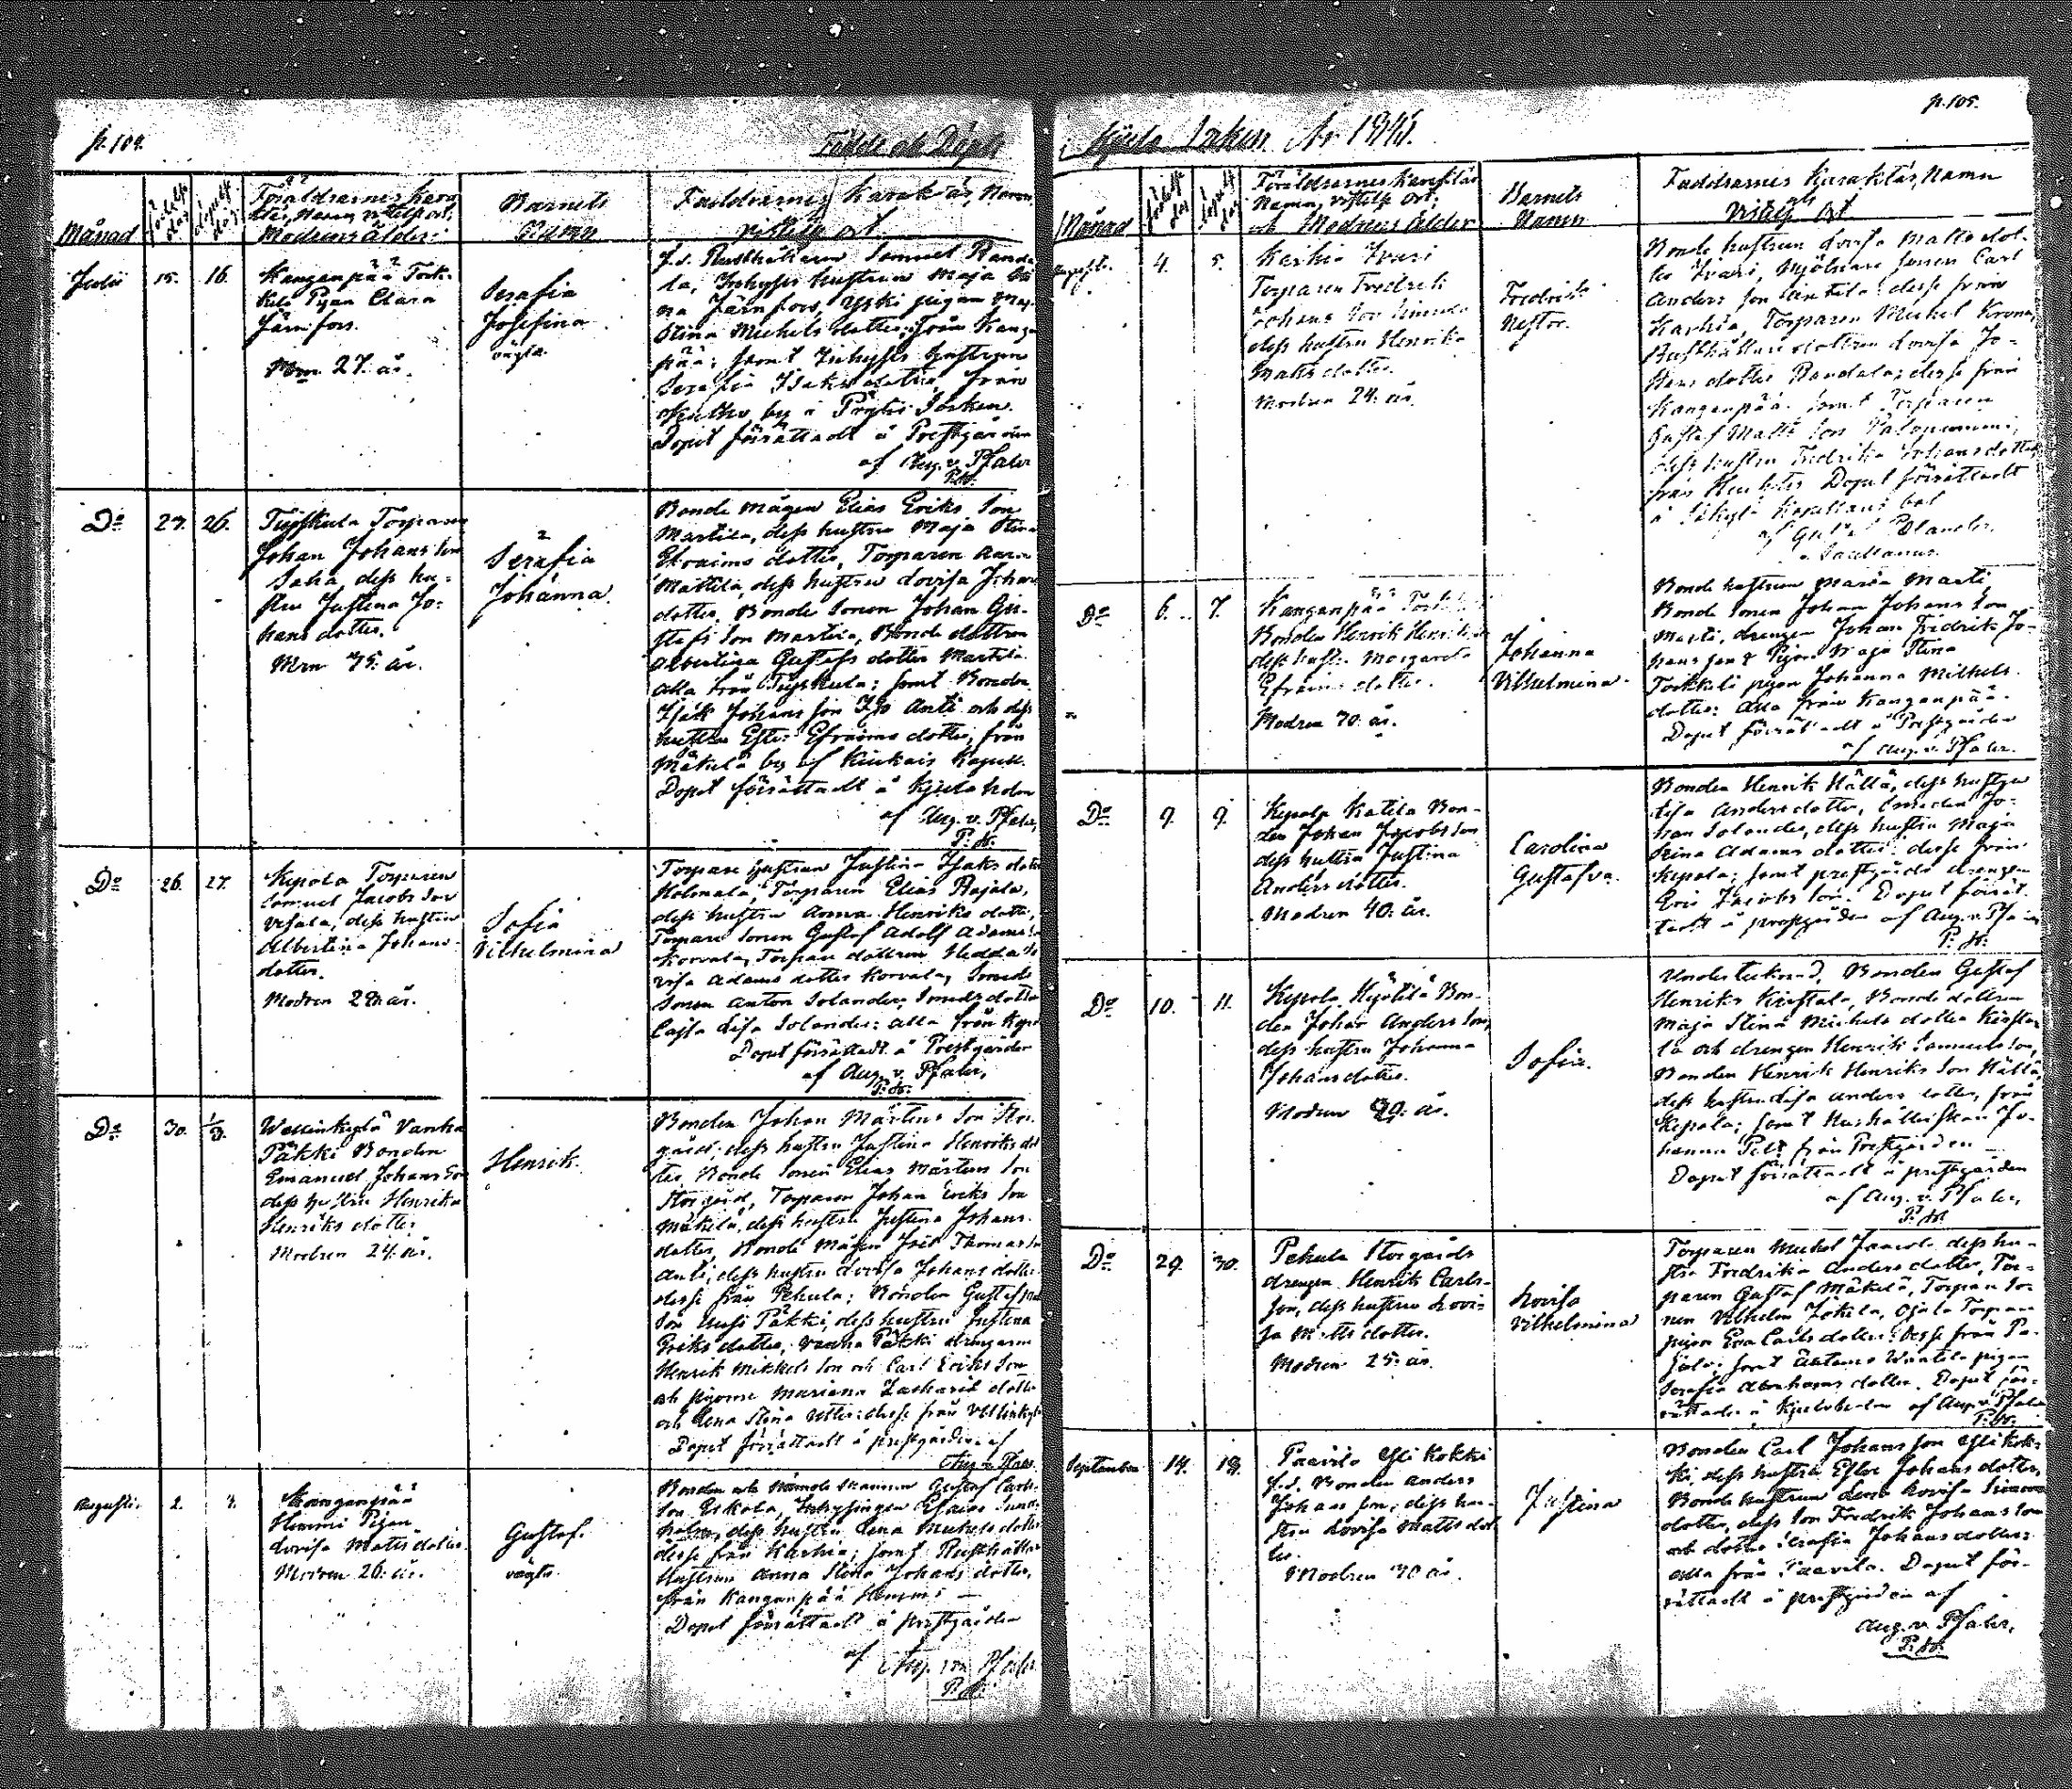 p. 104.
Födde och Döpte
Månad
födelse dag
döpelse dag
Föräldrarnes Karaktär, Namn, vistelse ort;
Modrens ålder
Barnets
Namn
Faddrarnes Karaktär, Namn
vistelse ort
Julii
15.
16.
Kanganpää Tork-
kila Pigan Clara
Järnfors.
Mrn 27. år.
Serafia
Josefina
oägta.
f.d. Rusthållaren Samuel Randa-
la, Inhyses hustrun Maja
na Järnfors, Yski pigan Maj.
Stina Michelsdotter; från Kangan-
pää; samt Inhyses hustrun
Serafia Isaksdotter från
by i Påmis Socken.
Dopet förrättadt å Prestgården
af Aug. v. Pfaler
P.H.
Do
27.
26.
Tujskula Torparen
Johan Johansson
Saha, dess hu-
stru Justina Jo-
hans dotter.
Mrn 45. år.
Serafia
Johanna.
Bonde mågen Elias Eriks Son
Martila, dess hustru Maja Stina
Efraims dotter, Torparen
Mattila, dess hustru Lovisa Johans
dotter, Bonde Sonen Johan Gu-
stafs Son Martila, Bonde dottren
Albertina Gustafs dotter Martila
alla från Tujskula; samt Bonden
Isak Johans Son Anti och dess
hustru Ester Efraims dotter, från
Mäkelä by af Kiukais Kapell.
Dopet förrättadt å Kjuloholm
af Aug. v. Pfaler,
P. H.
Do
26.
27.
Kepola Torparen
Samuel Jacobs Son
Vesala, dess hustru
Albertina Johans-
dotter.
Modren 28. år.
Sofia
Vilhelmina
Torpare hustrun Justina Isaks dotter
Holmala, Torparen Elias Rajala,
dess hustru Anna Henriks dotter,
Torpare Sonen Gustaf Adolf Adams
Korvala, Torpare dottren Hedda
visa Adams dotter Korvala, Smeds
Sonen Anton Solander, Smeds dotter
Cajsa Lisa Solander: alla från Kepola
Dopet förrättadt å Prestgården
af Aug. v. Pfaler,
P. H.
Do
30.
1/8.
Wallinkylä Vanha
Päkki Bonden
Emanuel Johans Son
dess hustru Henrika
Henriks dotter
Modren 24. år.
Henrik.
Bonden Johan Mårtens Son Stor-
gård, dess hustru Justina Henriks dot
ter, Bonde Sonen Elias Mårtens Son
Storgård, Torparen Johan Eriks Son
Mäkilä, dess hustru Justina Johans
dotter, Bonde Mågen Thomas
Anti, dess hustru Lovisa Johans dotter
desse från Pehula; Bonden Gustaf
Son Uusi Päkki, dess hustru Justina
Eriks dotter, Vanha Päkki drengarne
Henrik Mikkels Son och Carl Eriks Son
och pigorne Mariana Zacharias dotter
och Lena Stina desse från Vallinkylä
Dopet förrättadt å prestgården af
Aug. v. Pfaler.
Augusti.
2.
Kanganpää
Hemmi Pigan
Lovisa Matts dotter.
Modren 26. år.
Gustaf.
oägta.
Bonden och Nämndemannen Gustaf Carls
Son Eskola, Inhysingen Efraim Sund-
holm, dess hustru Lena Michels dotter
desse från Karhia; samt Rusthållare
Hustrun Anna Stina Johans dotter,
från Kanganpää Hemmi
Dopet förrättadt å prestgården
af Aug. von Pfaler
P. H.
p. 105.
i Kjulo Socken År 184
Månad
födelse dag
döpelse dag
Föräldrarnes Karaktär
Namn, vistelse Ort,
och Modrens ålder
Barnets
Namn
Faddrarnes Karaktär, Namn
vistelse Ort
Augusti.
4.
5.
Karhia Ivari
Torparen Fredrik
Johans Son
dess hustru Henrika
Matts dotter.
Modren 24. år.
Fredrik
Nestor.
Bonde hustrun Lovisa Matts dot-
ter Ivari, Mjölnare Sonen Carl
Anders Son Anttila: desse från
Karhia, Torparen Michel Krona,
Rusthållare dottren Lovisa Jo-
hans dotter Randala; desse från
Kanganpää. samt Torparen
Gustaf Matts Son
dess hustru Fredrika Johans dotter,
från Dopet förrättadt
i Säkylä Kapellans bol
af Gust. Polander.
Sacellanus.
Do
6.
7.
Kanganpää
Bonden Henrik Henriks
dess hust. Margareta
Efraims dotter.
Modren 30. år.
Johanna
Vilhelmina.
Bonde hustrun Maria Marti
Bonde Sonen Johan Johans Son
Marti, drengen Johan Fredrik Jo-
hans Son, Pigan Maja Stina
Torkkeli pigan Johanna Michels
dotter: alla från Kanganpää.
Dopet förrättadt å Prestgården
af Aug. v. Pfaler.
Do
9.
9.
Kepola Katila Bon-
den Johan Jacobs Son
dess hustru Justina
Anders dotter.
Modren 40. år.
Carolina
Gustafva.
Bonden Henrik Källä, dess hustru
Lisa Anders dotter, Smeden Jo-
han Solander, dess hustru Maja
Stina Adams dotter: desse från
Kepola; samt prestgårds drengen
Eric Jacobs Son. Dopet förrät-
tadt å prestgården af Aug. v. Pfaler
P. H.
Do
10.
11.
Kepola Hyötilä Bon-
den Johan Anders Son,
dess hustru Johanna
Johans dotter.
Modren 29. år.
Sofia.
Undertecknad, Bonden Gustaf
Henriks Kirstala, Bonde dottren
Maja Stina Michels dotter Kirsta-
la och drengen Henrik Samuels Son,
Bonden Henrik Henriks Son Källä,
dess hustru Lisa Anders dotter, från
Kepola; samt Hushållerskan Jo-
hanna från Prestgården
Dopet förrättadt å prestgården
af Aug. v. Pfaler,
P. H.
Do
29.
30.
Pehula Storgårds
drengen Henrik Carls-
Son, dess hustru Lovi-
sa Matts dotter.
Modren 25. år.
Lovisa
Vilhelmina
Torparen Michel dess hu-
stru Fredrika Anders dotter, Tor-
paren Gustaf Mäkilä, Torpare So-
nen Vilhelm Jokela, Ojala Torpare
pigan Eva Carls dotter: desse från
samt pigan
Serafia Abrahams dotter. Dopet för-
rättadt å Kjuloholm af Aug. v. Pfaler
P. H.
September
14.
18.
Paavila Yli Kokki
f.d. Bonden Anders
Johans Son, dess hu-
stru Lovisa Matts dot
ter.
Modren 30 år.
Justina
Bonden Carl Johans Son Yli Kok-
ki dess hustru Ester Johans dotter,
Bonde hustrun Lovisa Simons
dotter, dess Son Fredrik Johans Son
och dotter Serafia Johans dotter:
alla från Paavila. Dopet för-
rättadt å prestgården af
Aug. v. Pfaler,
P. H.